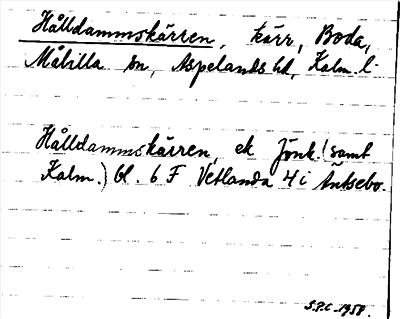 Hålldammskärren, kärr, Boda,
Målilla sn, Aspelands hd, Kalm. l.
Hålldammskärren, ek Jönk. (samt
Kalm.) bl. 6 F Vetlanda 4 i Äntsebo.
S.P.C. 1958.